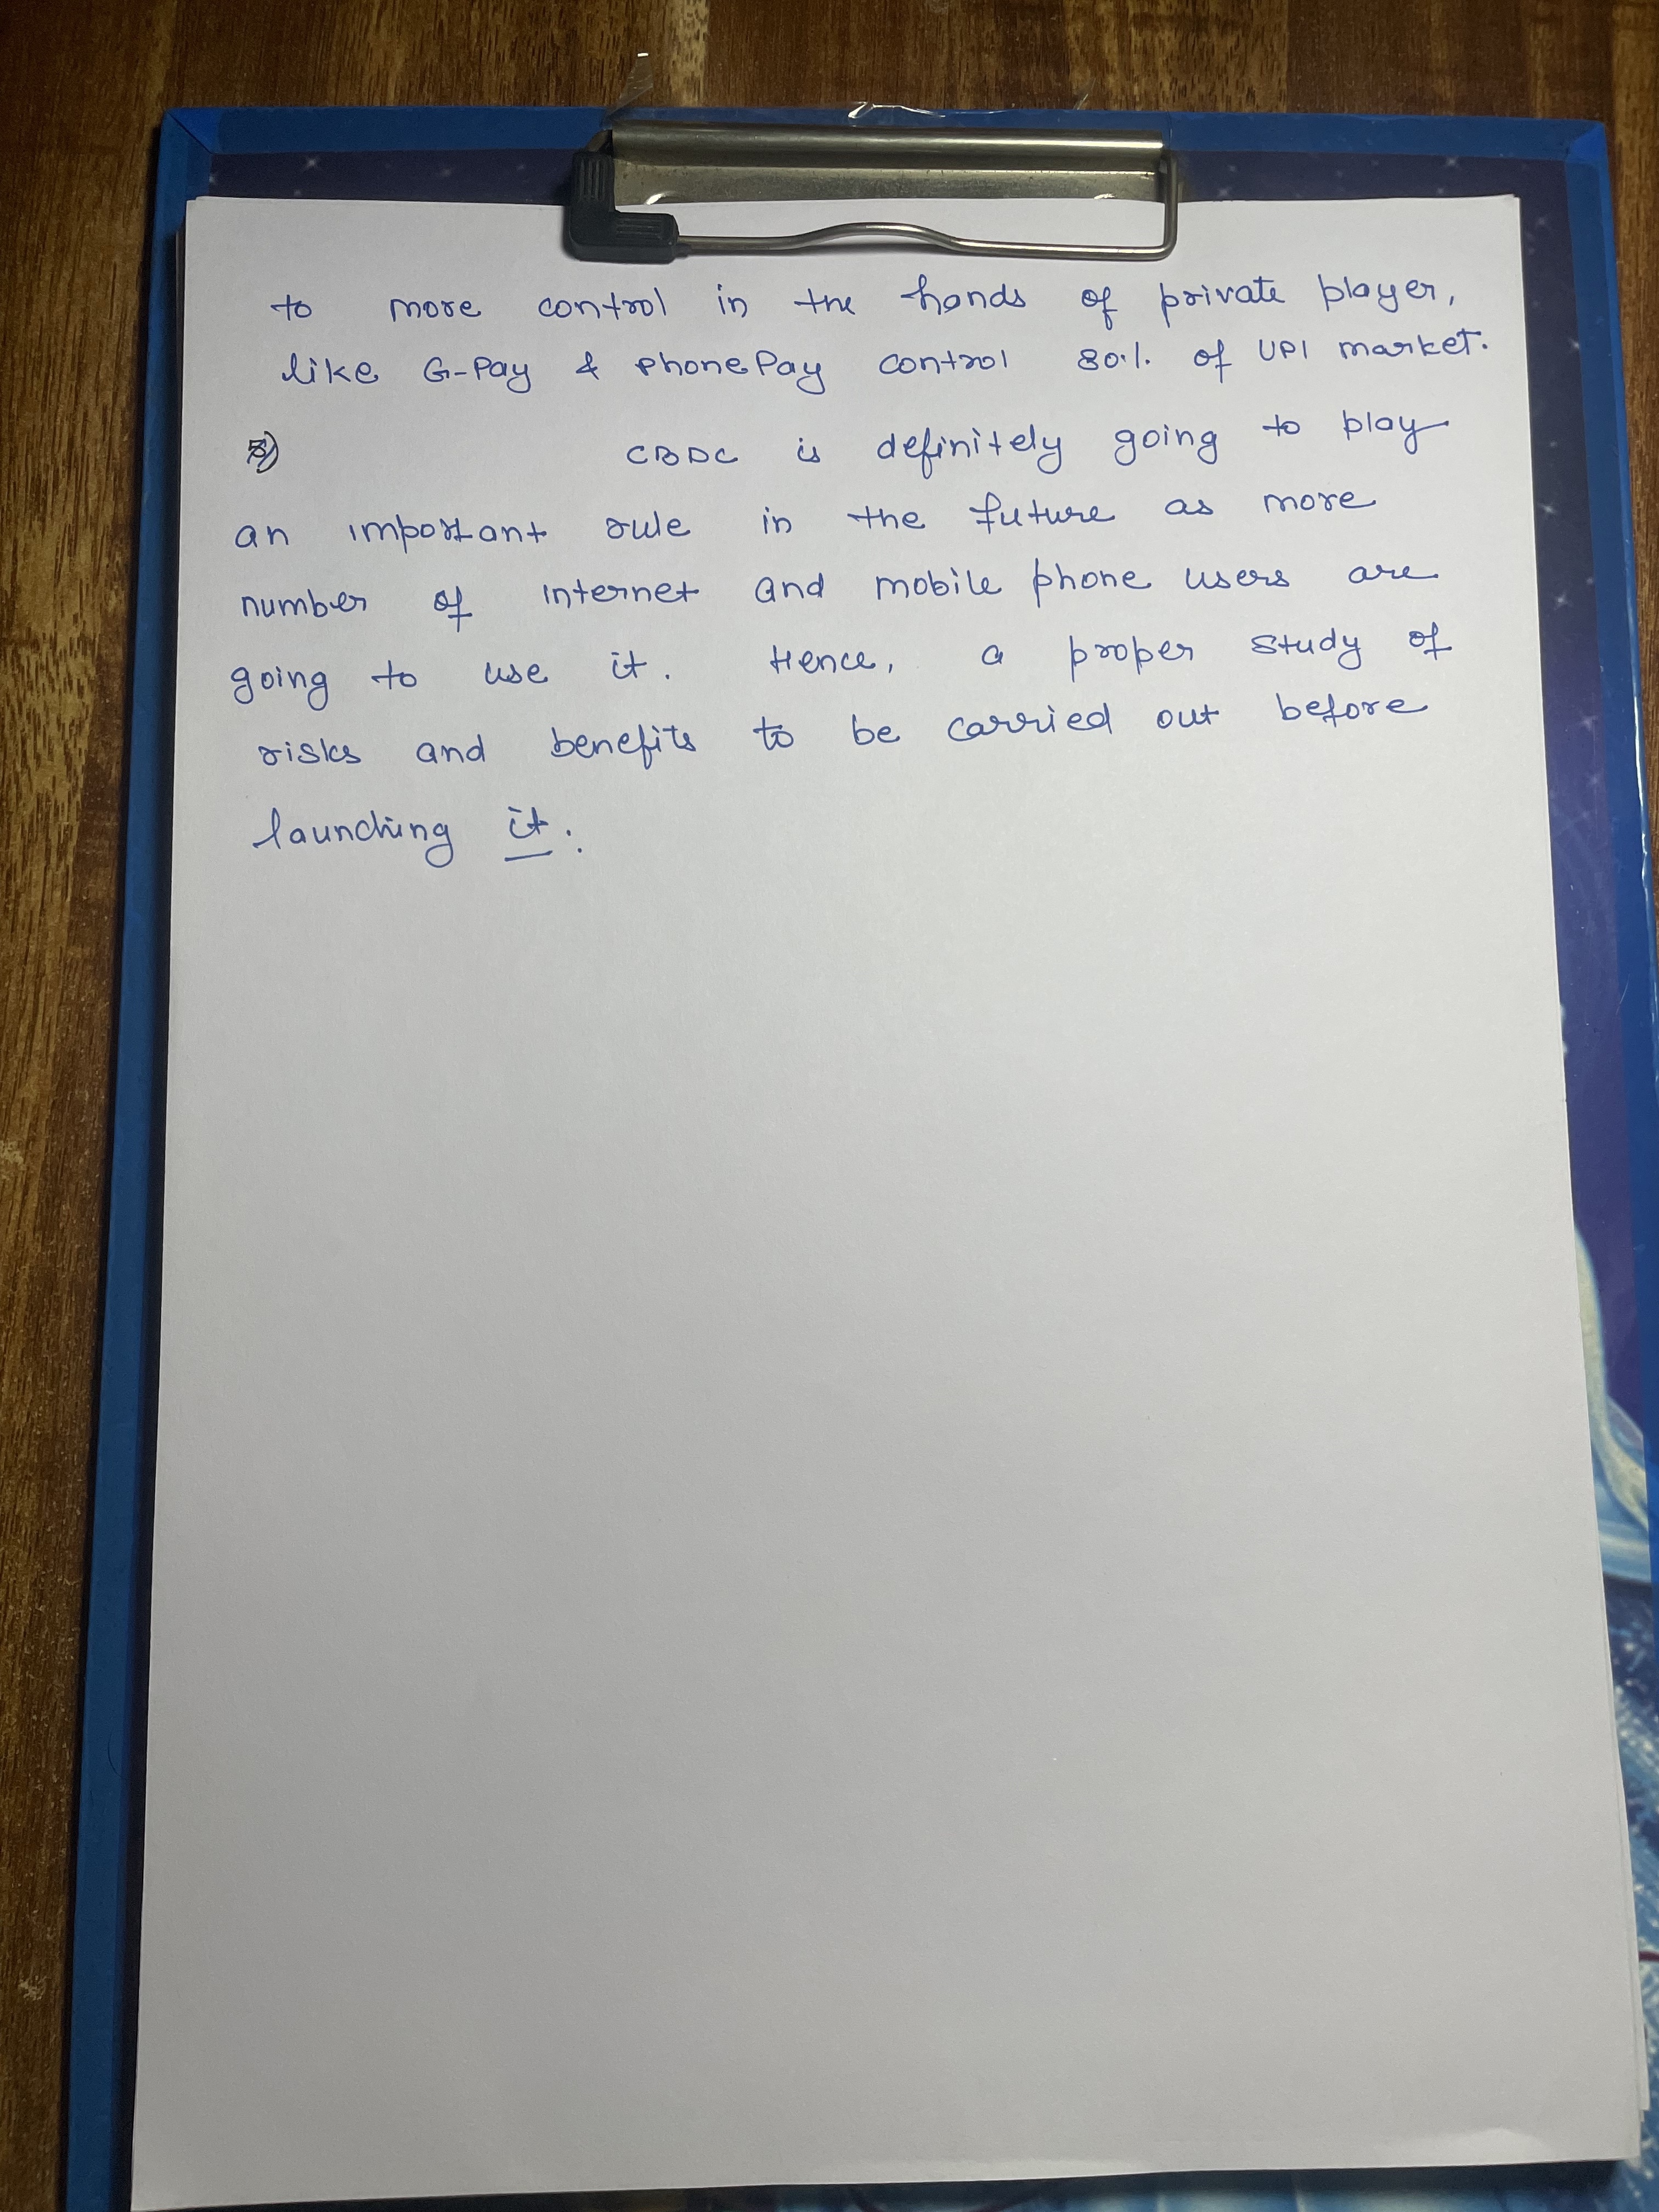 to more control in the hands of private player,
like G-Pay & PhonePay control 80% of UPI market.
CBDC is definitely going to play
an important rule in the future as more
number of internet and mobile phone users are
going to use it. Hence, a proper study of
risks and benefits to be carried out before
launching it.